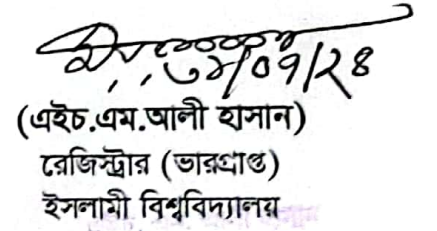 (এইচ.এম.আলী হাসান)
রেজিস্ট্রার (ভারপ্রাপ্ত)
ইসলামী বিশ্ববিদ্যালয়